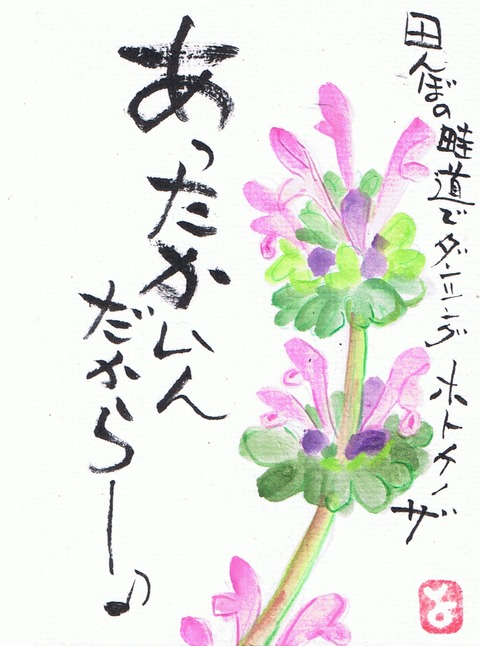 田んぼの畦道で ホトケノザ
あったかいん
だからー♪